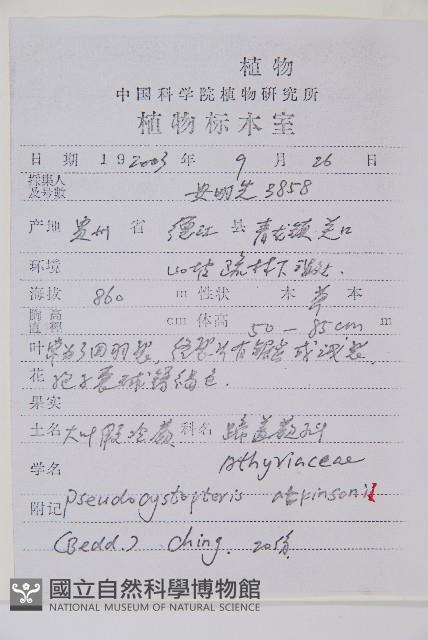 植物
中国科学院植物研究所
植物标本室
日期 19 2003 年 9 月 26 日
採集人及号数 安明先 3858
产地 贵州 省 德江 县 青龙镇 关口
环境 山坡疏林下
海拔 860 m 性状 木 草 本
胸高直徑 cm 体高 50－85cm m
叶 三回羽裂
花 孢子囊
果实
土名 大叶假冷蕨 科名 蹄盖蕨科
学名 Athyriaceae
附记 Pseudocystopteris atkinsonii
(Bedd.) Ching.
國立自然科學博物館
NATIONAL MUSEUM OF NATURAL SCIENCE